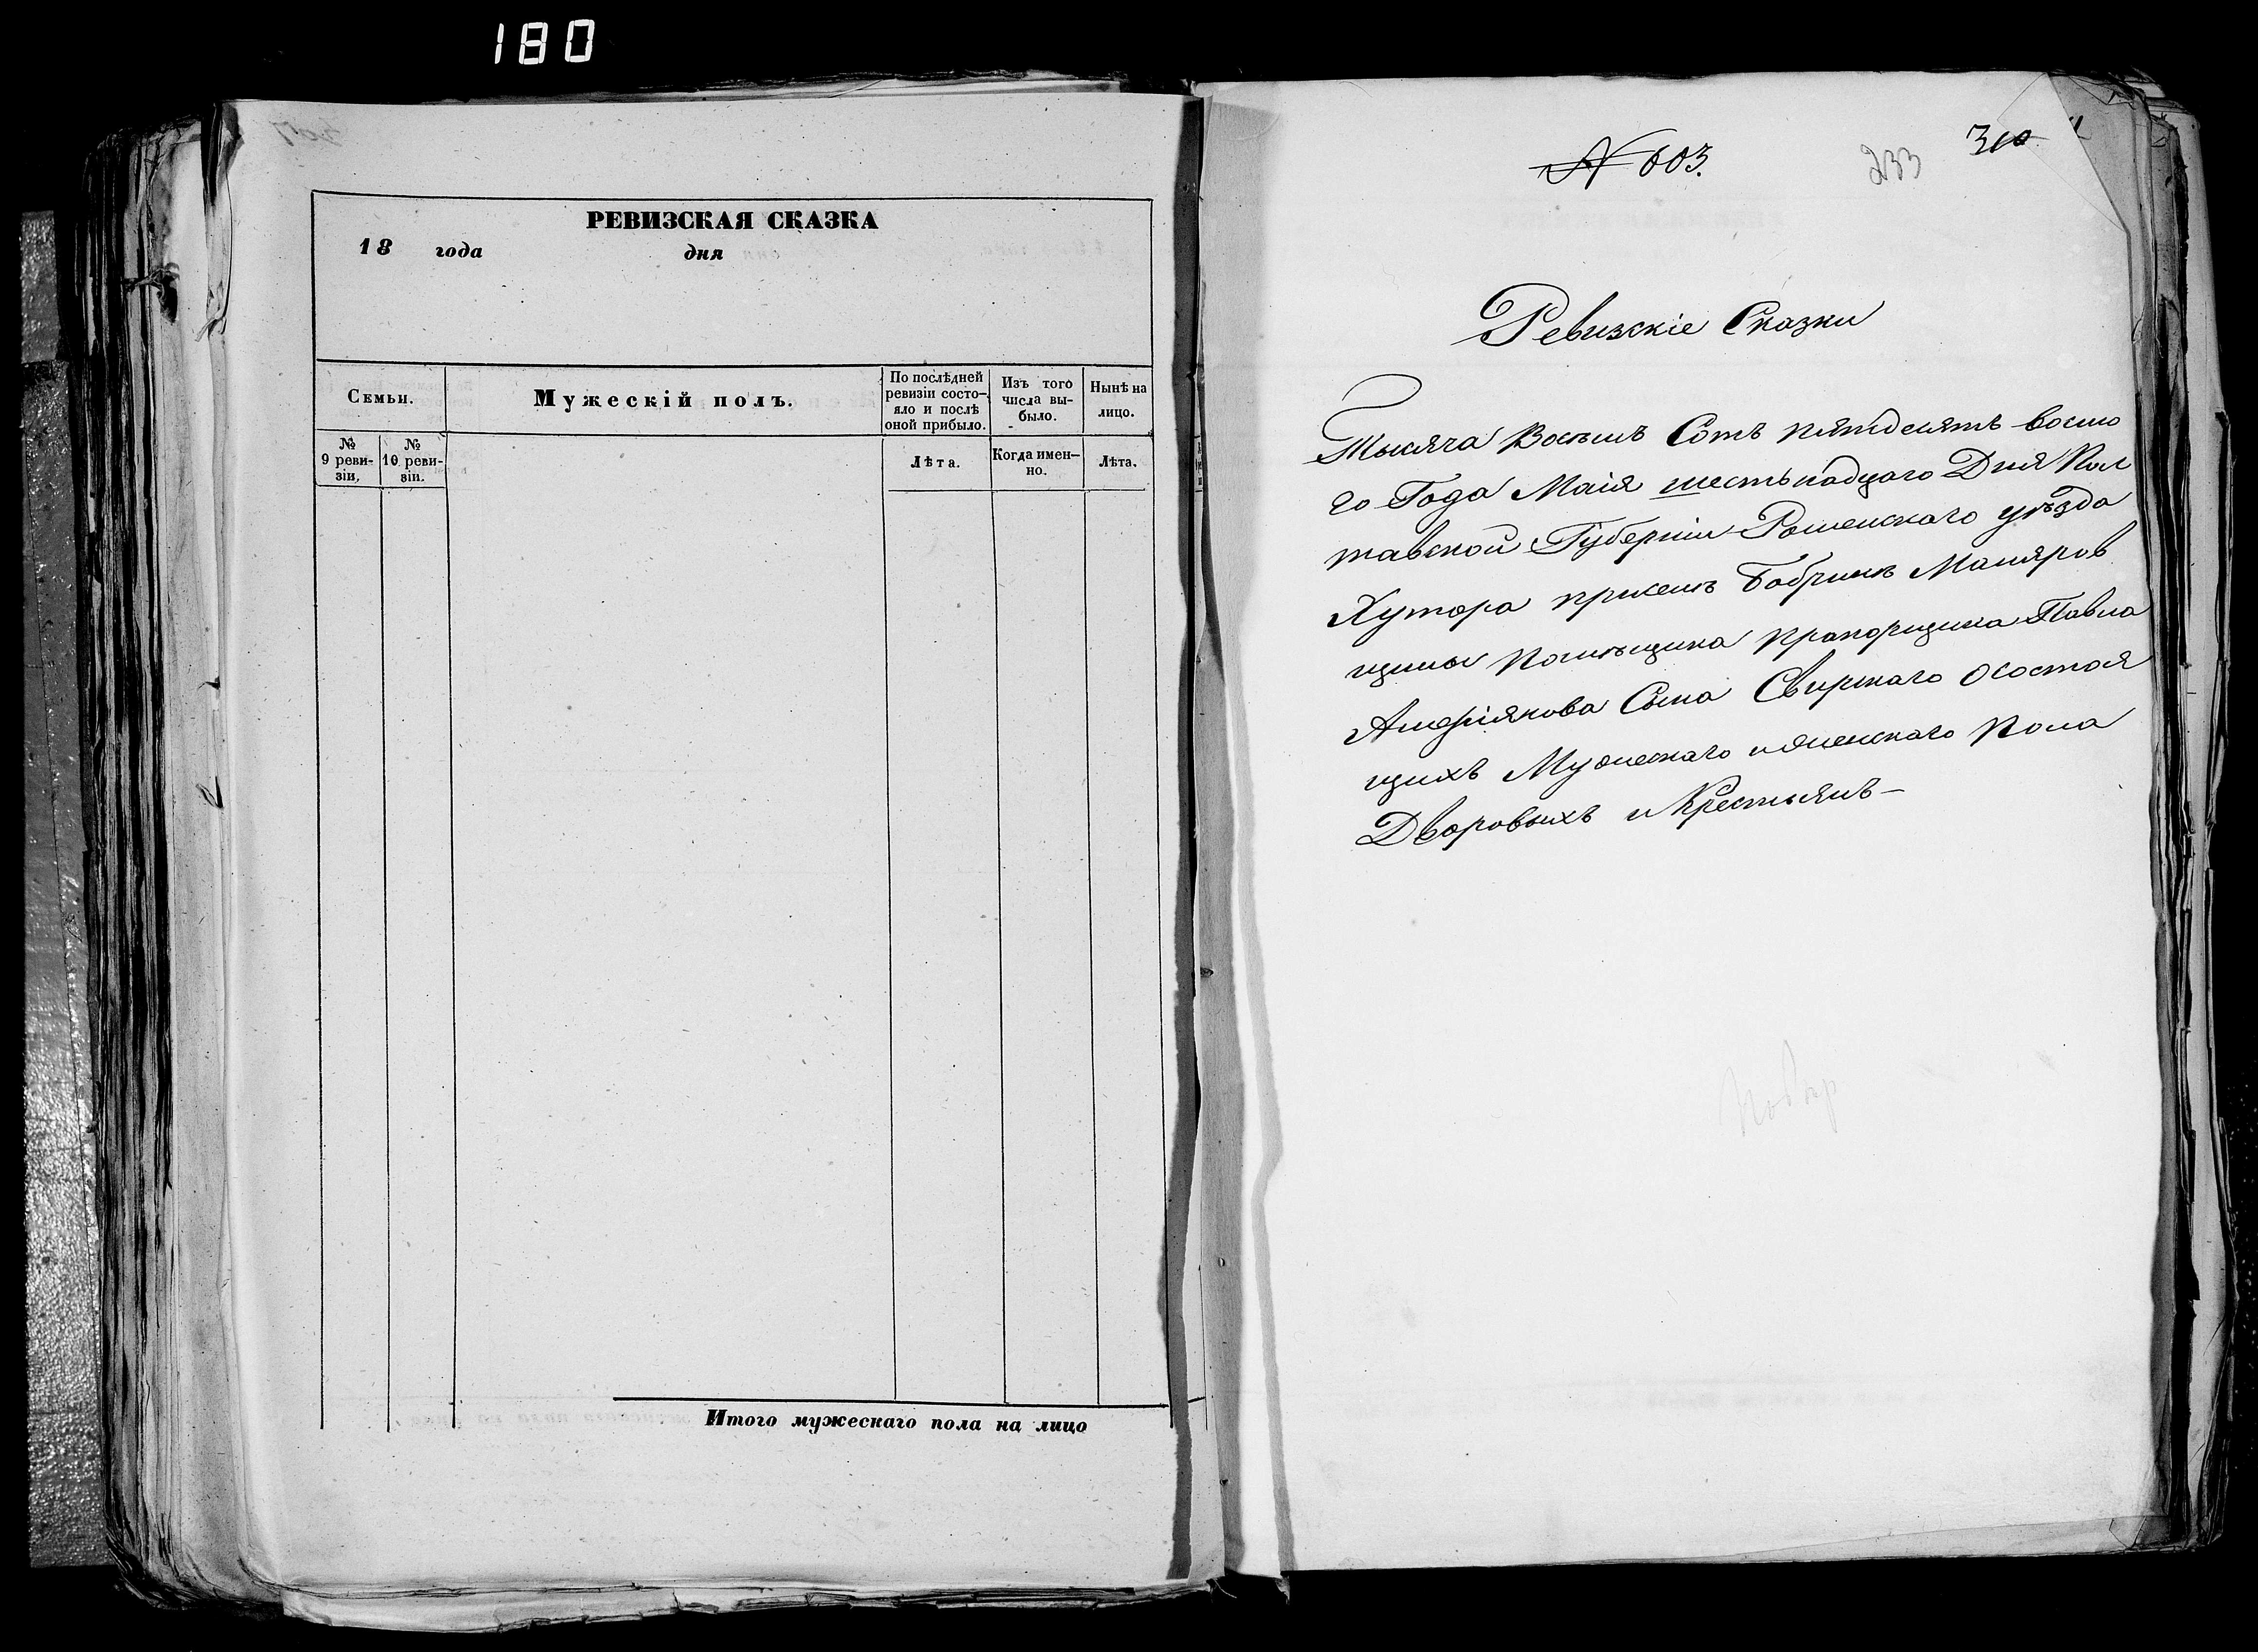 180
РЕВИЗСКАЯ СКАЗКА
18 года дня
Семьи.
Мужескій полъ.
По послѣдней ревизіи состо-
яло и послѣ оной прибыло.
Изъ того числа вы-
было.
Нынѣ на лицо.
№ 9 реви-
зіи.
№ 10 реви-
зіи.
Лѣта.
Когда имен-
но.
Лѣта.
Итого мужескаго пола на лицо
№ 603.
233
310
Ревизскіе Сказки
Тысяча Восемь Сотъ пятдесятъ восмо
го Года Маія шестьнадцаго Дня Пол
тавской Губерніи Роменскаго уѣзда
Хутора присемъ Бобрикъ Маняров
щины Помѣщика Прапорщика Павла
Сына Свирскаго осостоя
щихъ Мужескаго иженскаго Пола
Дворовыхъ и Крестьянъ-